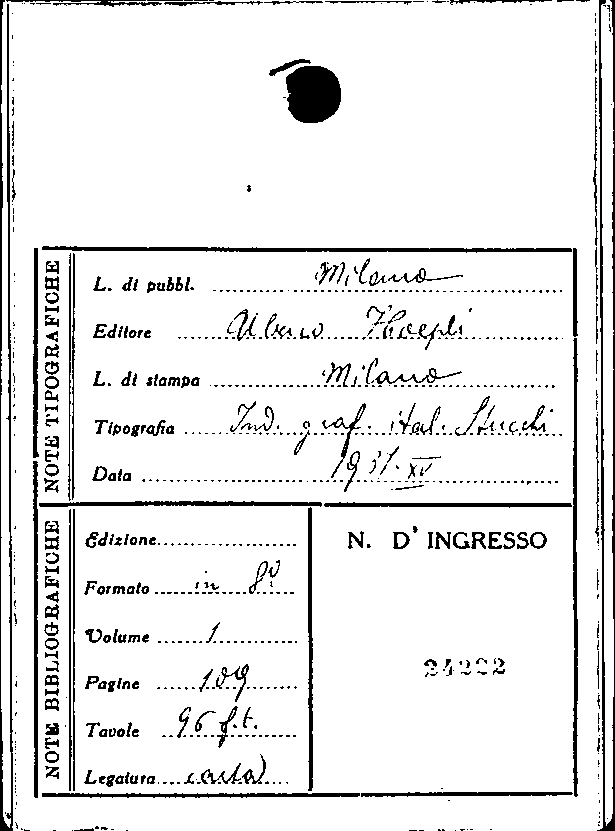 NOTE TIPOGRAFICHE
L. di pubbl. Milano
Editore Ulrico Hoepli
L. di stampa Milano
Tipografia Ind. graf. ital. Stucchi
Data 1937-XV
NOTE BIBLIOGRAFICHE
Edizione
Formato in 8º
Volume 1
Pagine 109
Tavole 96 f.t.
Legatura carta
N. D'INGRESSO
24222